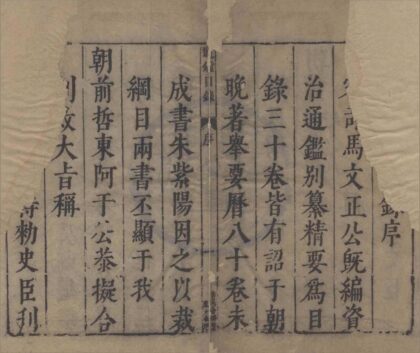 錄序
司馬文正公旣編資
治通鑑别纂精要爲目
錄三十卷皆有詔于朝
晚著舉要曆八十卷未
目錄 序
成書朱紫陽因之以裁
綱目兩書丕顯于我
朝前哲東阿于公恭擬合
大旨稱
勅史臣刋